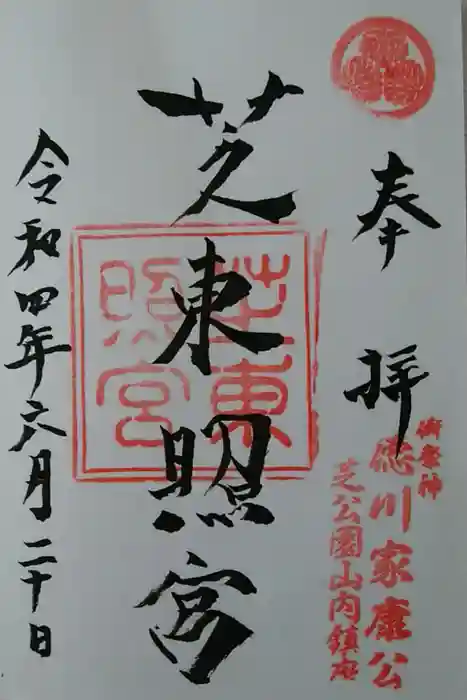 奉拝
御祭神
徳川家康公
芝公園山内鎮座
芝東照宮
芝東照宮
令和四年六月二十日